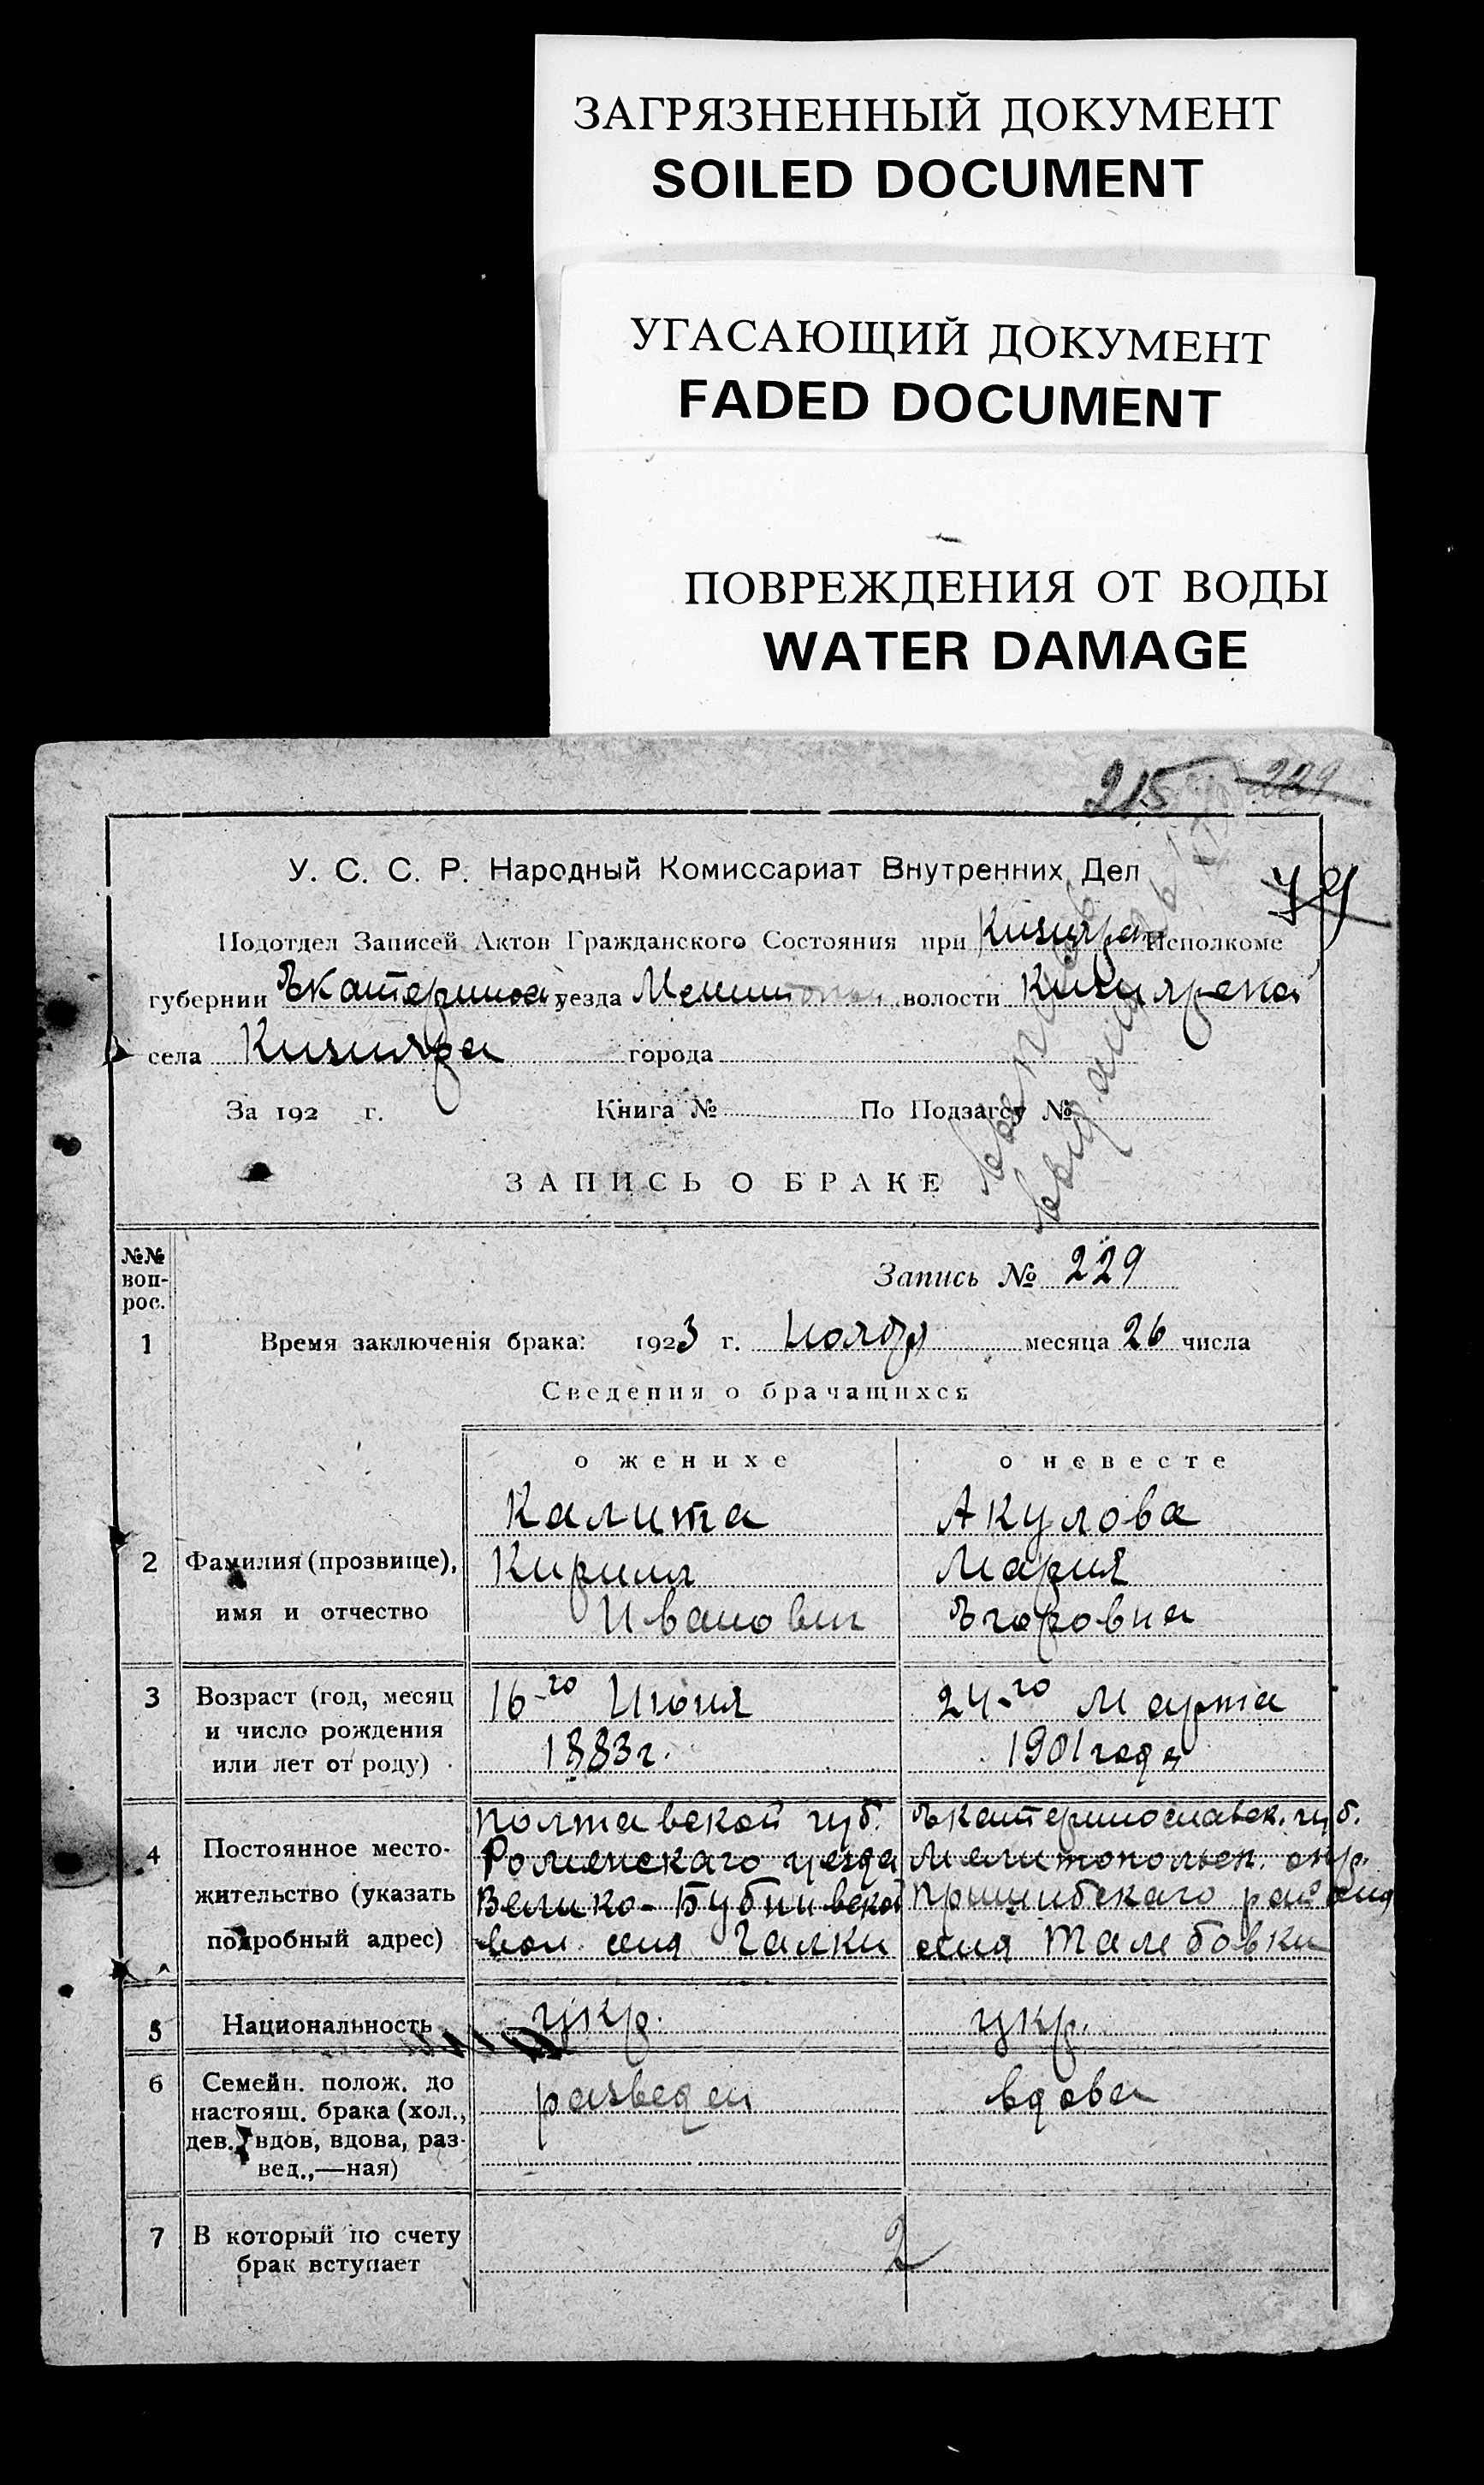 ЗАГРЯЗНЕННЫЙ ДОКУМЕНТ
SOILED DOCUMENT
УГАСАЮЩИЙ ДОКУМЕНТ
FADED DOCUMENT
ПОВРЕЖДЕНИЯ ОТ ВОДЫ
WATER DAMAGE
215 229
79
У. С. С. Р. Народный Комиссариат Внутренних Дел
Подотдел Записей Актов Гражданского Состояния при Кизияр Исполкоме
губернии Екатеринос уезда Мелитопол волости Кизиярско
села Кизияра города
За 192 г. Книга № По Подзагсу №
ЗАПИСЬ О БРАКЕ
№№ воп-рос.
Запись № 229
1 Время заключенія брака: 1923 г. Ноября месяца 26 числа
Сведения о брачащихся
о женихе о невесте
Калита Акулова
2 Фамилия (прозвище), Кирилл Мария
имя и отчество Иванович Егоровна
3 Возраст (год, месяц 16-го Июня 24-го Марта
и число рождения
или лет от роду) 1883г. 1901 года
Полтавской губ. Екатеринославск. губ.
4 Постоянное место- Роменскаго уезда Мелитопольск. окр.
жительство (указать Велико-Бубновской Пришибскаго района
подробный адрес) вол. села Галки села
5 Национальность укр. укр.
6 Семейн. полож. до разведен вдова
настоящ. брака (хол.,
дев., вдов, вдова, раз-
вед.,—ная)
7 В который по счету 2
брак вступает